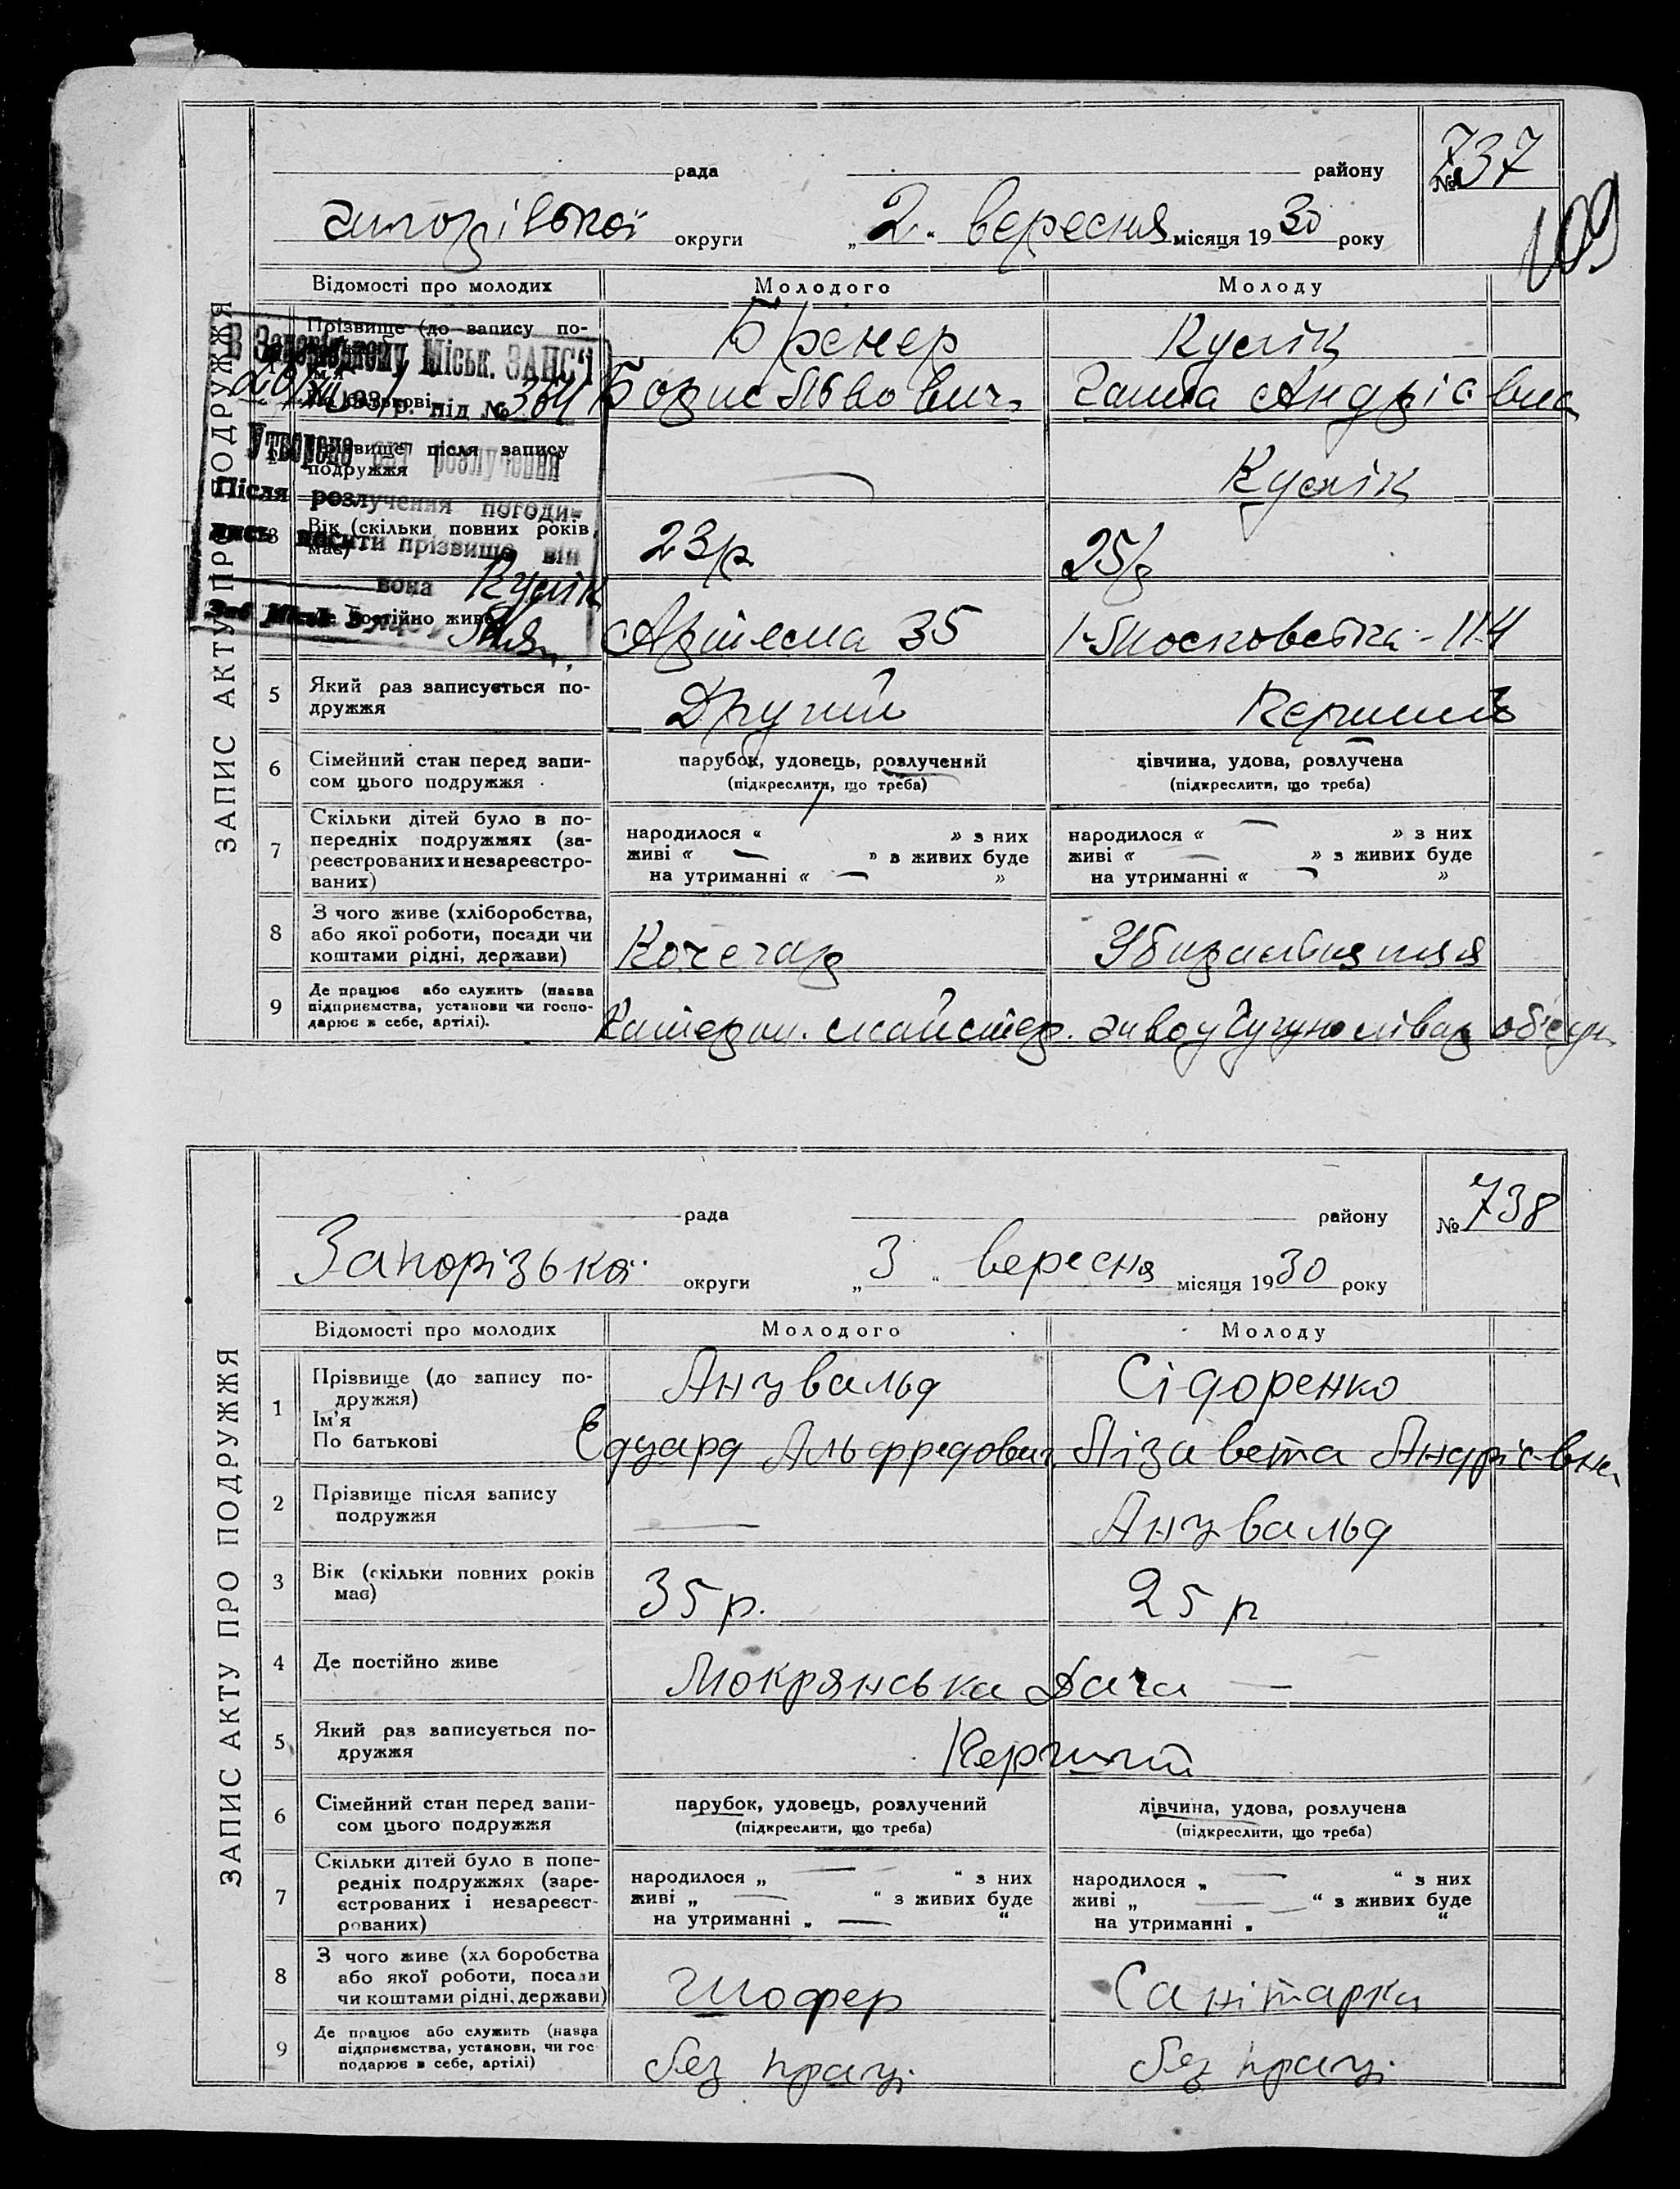 ЗАПИС АКТУ ПРО ПОДРУЖЖЯ
рада району № 737
округи „2" вересня місяця 1930 року
109
Відомості про молодих Молодого Молоду
Прізвище (до запису по-
По батькові
Бренер Куслік
Борис Львович Ганна Андріївна
В Запорізькому Міськ. ЗАГС'і
193 р. під № 304
Утворено акт розлучення
Після розлучення погоди-
лись носити прізвище він
вона Куслік
Прізвище після запису
подружжя
— Куслік
3 Вік (скільки повних років
має)
23р 25р
постійно живе
Артема 35 Московська - 114
5 Який раз записується по-
дружжя
Другий Перший
6 Сімейний стан перед запи-
сом цього подружжя
парубок, удовець, розлучений дівчина, удова, розлучена
(підкреслити, що треба) (підкреслити, що треба)
7 Скільки дітей було в по-
передніх подружжях (за-
реєстрованих и незареєстро-
ваних)
народилося « » з них народилося « — » з них
живі « — » з живих буде живі « — » з живих буде
на утриманні « — » на утриманні « — »
8 З чого живе (хліборобства,
або якої роботи, посади чи
коштами рідні, держави)
Кочегар
9 Де працює або служить (назва
підприємства, установи чи госпо-
дарює в себе, артілі).
майстер.
ЗАПИС АКТУ ПРО ПОДРУЖЖЯ
рада району № 738
Запорізької округи „3" вересня місяця 1930 року
Відомості про молодих Молодого Молоду
1 Прізвище (до запису по-
дружжя)
Ім'я
По батькові
Анувальд Сідоренко
Едуард Альфредович Лізавета Андрієвна
2 Прізвище після запису
подружжя
— Анувальд
3 Вік (скільки повних років
має)
35 р. 25 р
4 Де постійно живе
Мокрянська Дача —
5 Який раз записується по-
дружжя
Перший
6 Сімейний стан перед запи-
сом цього подружжя
парубок, удовець, розлучений дівчина, удова, розлучена
(підкреслити, що треба) (підкреслити, що треба)
7 Скільки дітей було в попе-
редніх подружжях (заре-
єстрованих і незареєст-
рованих)
народилося „ — “ з них народилося „ — “ з них
живі „ — “ з живих буде живі „ — “ з живих буде
на утриманні „ — “ на утриманні „ “
8 З чого живе (хл боробства
або якої роботи, посади
чи коштами рідні, держави)
Шофер Санітарка
9 Де працює або служить (назва
підприємства, установи, чи гос
подарює в себе, артілі)
без праці без праці